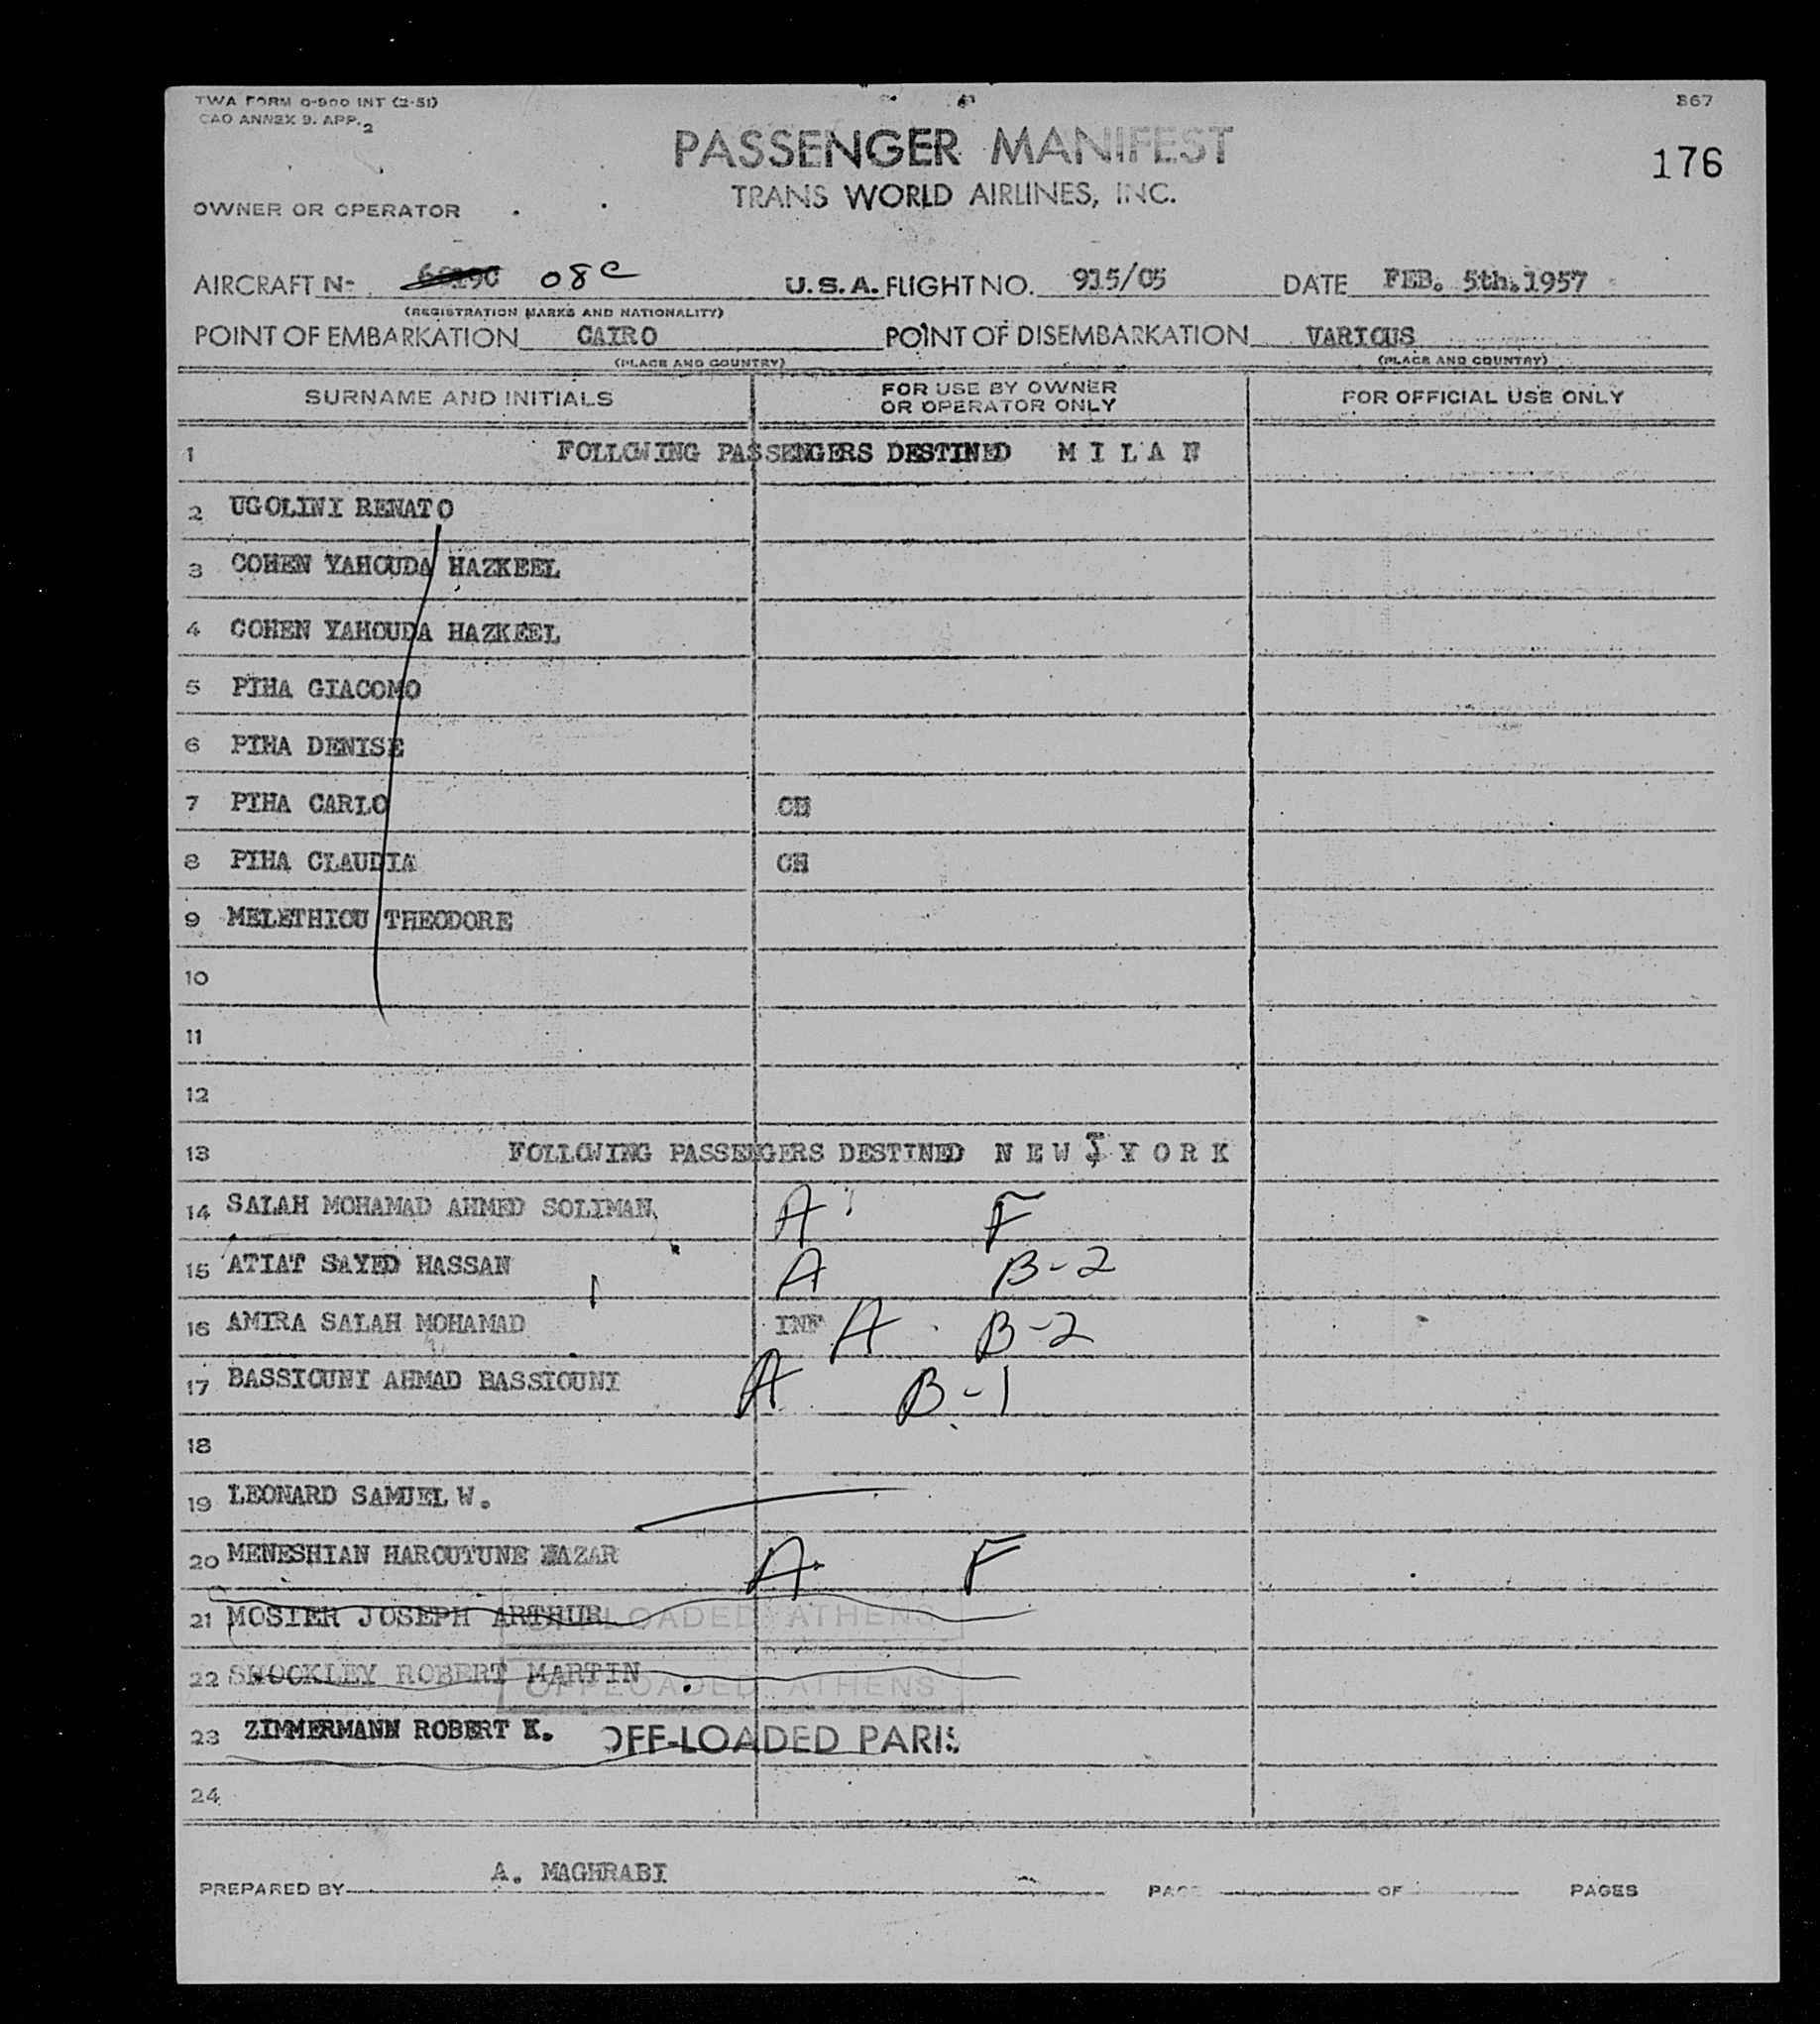 TWA FORM 0-900 INT (2-51)
CAO ANNEX 9. APP. 2
867
PASSENGER MANIFEST
176
TRANS WORLD AIRLINES, INC.
OWNER OR OPERATOR
AIRCRAFT N- 08C U.S.A. FLIGHT NO. 915/05 DATE FEB. 5th.1957
(REGISTRATION MARKS AND NATIONALITY)
POINT OF EMBARKATION CAIRO POINT OF DISEMBARKATION VARIOUS
(PLACE AND COUNTRY) (PLACE AND COUNTRY)
SURNAME AND INITIALS FOR USE BY OWNER OR OPERATOR ONLY FOR OFFICIAL USE ONLY
1 FOLLOWING PASSENGERS DESTINED M I L A N
2 UGOLINI RENATO
3 COHEN YAHOUDA HAZKEEL
4 COHEN YAHOUDA HAZKEEL
5 PIHA GIACOMO
6 PIHA DENISE
7 PIHA CARLO CH
8 PIHA CLAUDIA CH
9 MELETHIOU THEODORE
10
11
12
13 FOLLOWING PASSENGERS DESTINED N E W Y O R K
14 SALAH MOHAMAD AHMED SOLIMAN A F
15 ATIAT SAYED HASSAN A B-2
16 AMIRA SALAH MOHAMAD INF A B-2
17 BASSIOUNI AHMAD BASSIOUNI A B-1
18
19 LEONARD SAMUEL W.
20 MENESHIAN HAROUTUNE NAZAR A F
21 MOSIER JOSEPH ARTHUR OFFLOADED ATHENS
22 SHOCKLEY ROBERT MARTIN OFFLOADED ATHENS
23 ZIMMERMANN ROBERT K. OFF-LOADED PARIS
24
PREPARED BY A. MAGHRABI PAGE OF PAGES